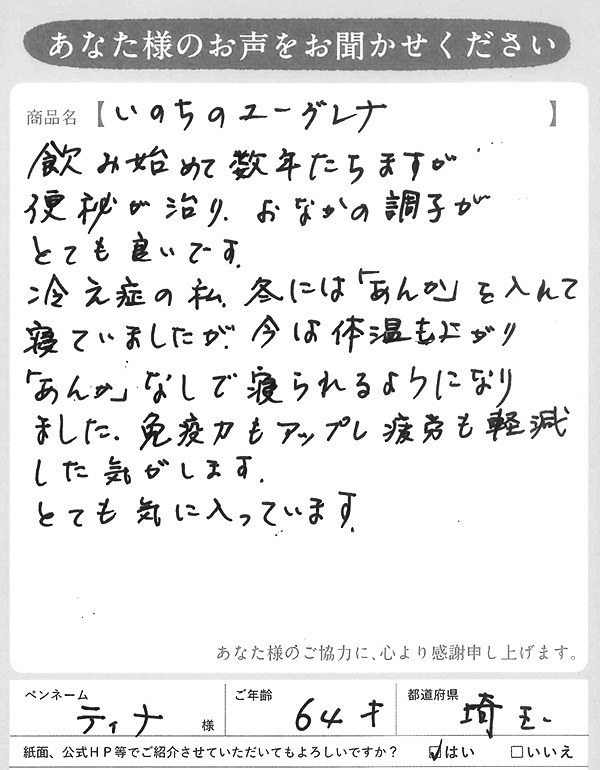 あなた様のお声をお聞かせください
商品名【いのちのユーグレナ】
飲み始めて数年たちますが
便秘が治り、おなかの調子が
とても良いです。
冷え症の私、冬には「あんか」を入れて
寝ていましたが、今は体温も上がり
「あんか」なしで寝られるようになり
ました。免疫力もアップし疲労も軽減
した気がします。
とても気に入っています。
あなた様のご協力に、心より感謝申し上げます。
ペンネーム ティナ 様 ご年齢 64才 都道府県 埼玉
紙面、公式HP等でご紹介させていただいてもよろしいですか? ☑はい □いいえ